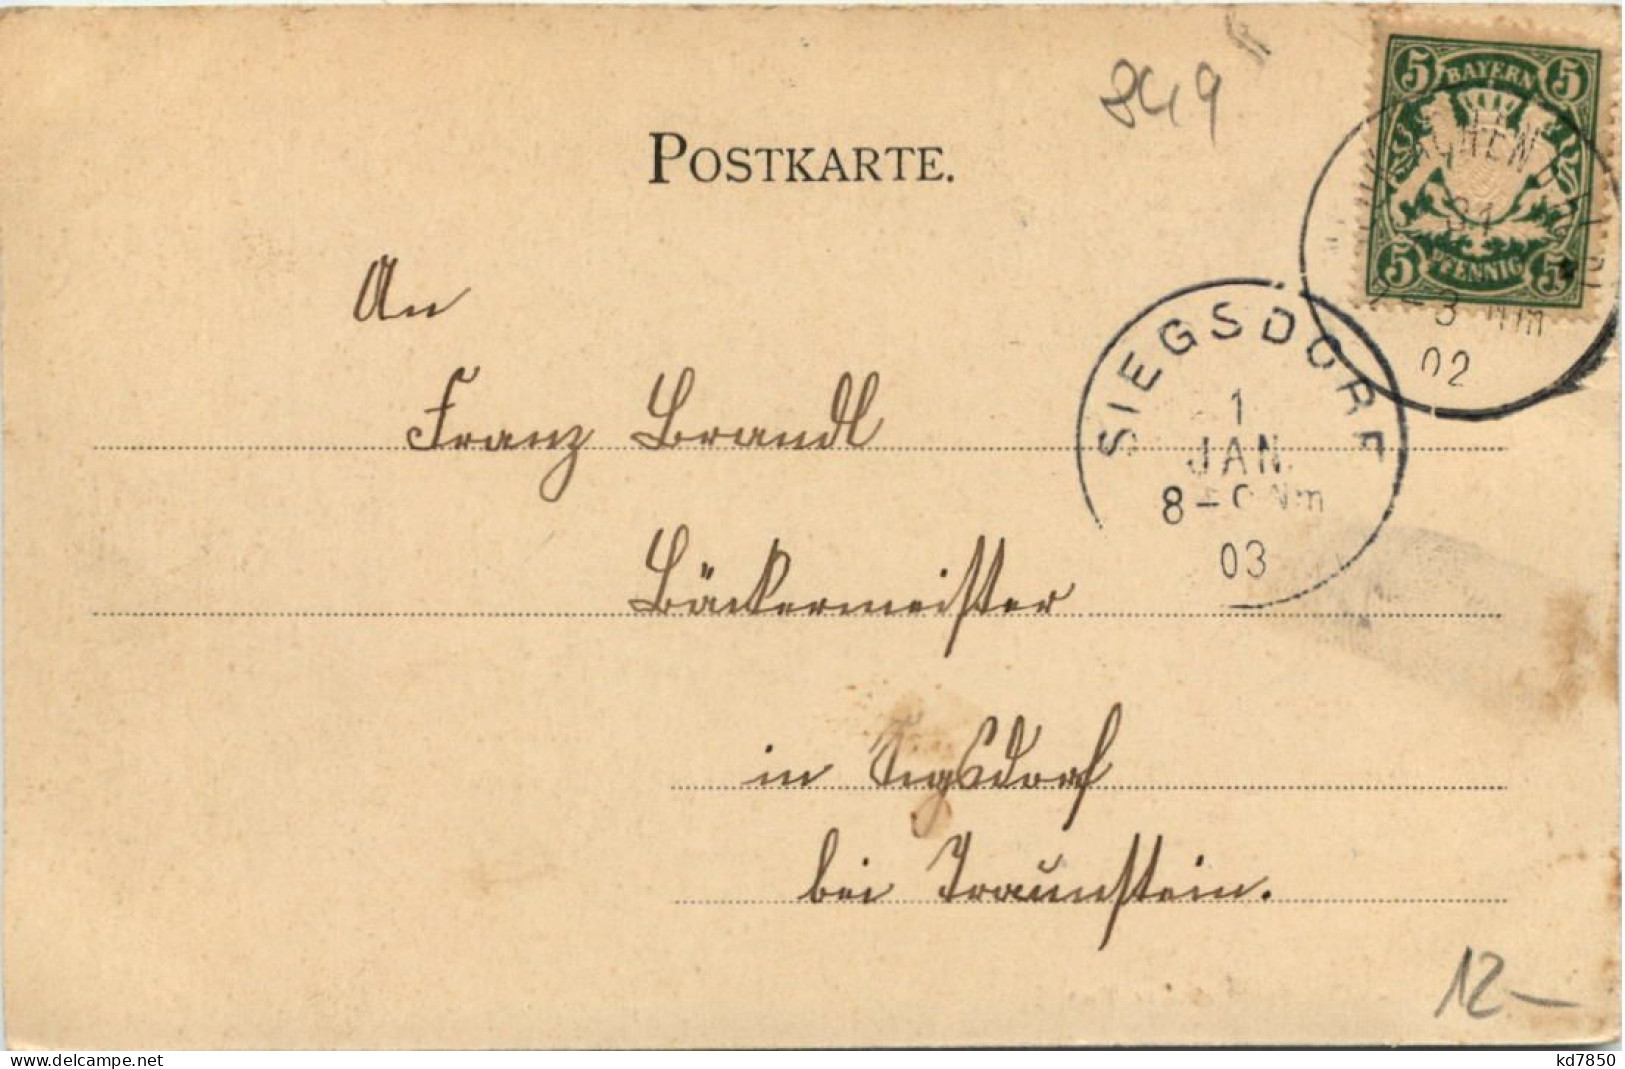 849
POSTKARTE.
5 BAYERN 5
5 PFENNIG 5
31
2-3 Nm
02
SIEGSDORF
1
JAN.
8-9 Nm
03
An
Franz Brandl
Bäckermeister
in Siegsdorf
bei Traunstein.
12.-
www.delcampe.net
kd7850